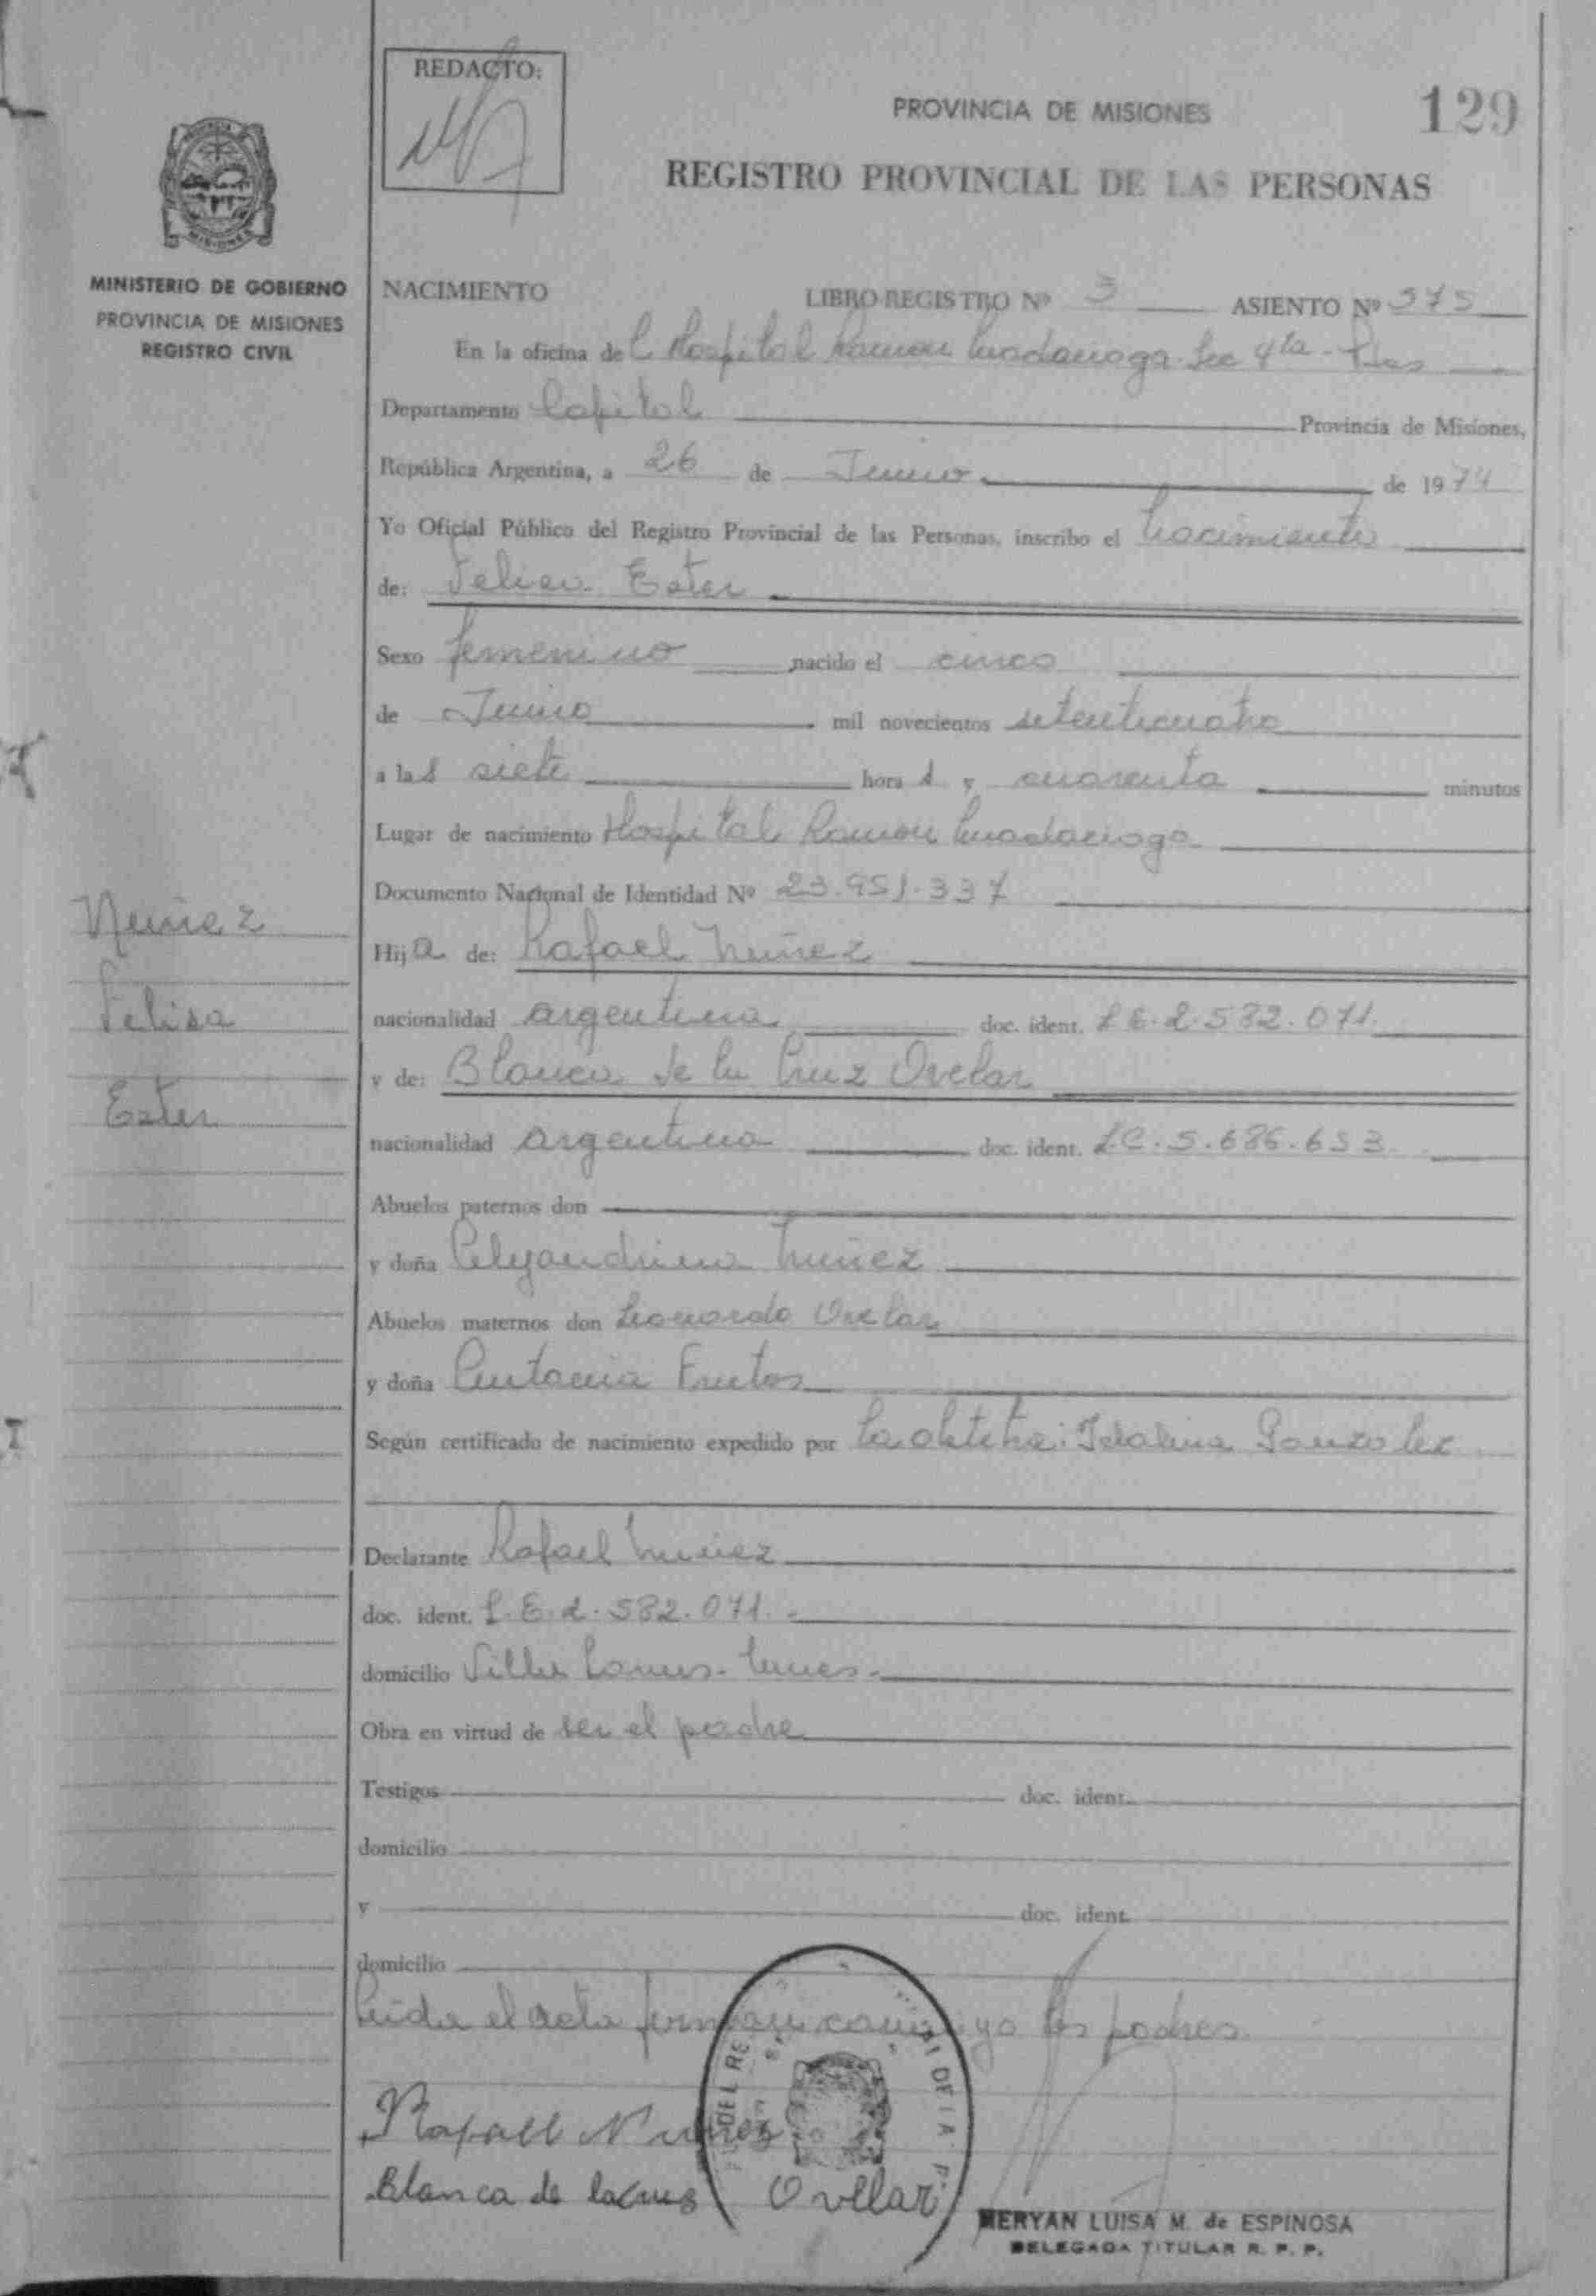 REDACTO:
PROVINCIA DE MISIONES
129
REGISTRO PROVINCIAL DE LAS PERSONAS
MISIONES
MINISTERIO DE GOBIERNO
PROVINCIA DE MISIONES
REGISTRO CIVIL
NACIMIENTO LIBRO REGISTRO Nº 3 ASIENTO Nº 575
En la oficina del Hospital Ramon Madariaga Sec 4ta - Pdas
Departamento Capital Provincia de Misiones,
República Argentina, a 26 de Junio de 1974
Yo Oficial Público del Registro Provincial de las Personas, inscribo el nacimiento
de: Felisa Ester
Sexo femenino nacido el cinco
de Junio mil novecientos setenticuatro
a las siete horas y cuarenta minutos
Lugar de nacimiento Hospital Ramon Madariaga
Documento Nacional de Identidad Nº 23.951.337
Nuñez
Hija de: Rafael Nuñez
Felisa
nacionalidad argentina doc. ident. L.E. 2.582.071.
y de: Blanca de la Cruz Ovelar
Ester
nacionalidad argentina doc. ident. L.C. 5.686.653.
Abuelos paternos don
y doña Alejandrina Nuñez
Abuelos maternos don Leonardo Ovelar
y doña Antonia Frutos
Según certificado de nacimiento expedido por la obstetra: Idalina Gonzalez
Declarante Rafael Nuñez
doc. ident. L.E. 2.582.071.-
domicilio Villa Lanus.
Obra en virtud de ser el padre
Testigos doc. ident.
domicilio
y doc. ident.
domicilio
Leida el acta firman conmigo los padres.
Rafaell Nuñez
Blanca de lacrus Ovellar
MERYAN LUISA M. de ESPINOSA
DELEGADA TITULAR R. P. P.